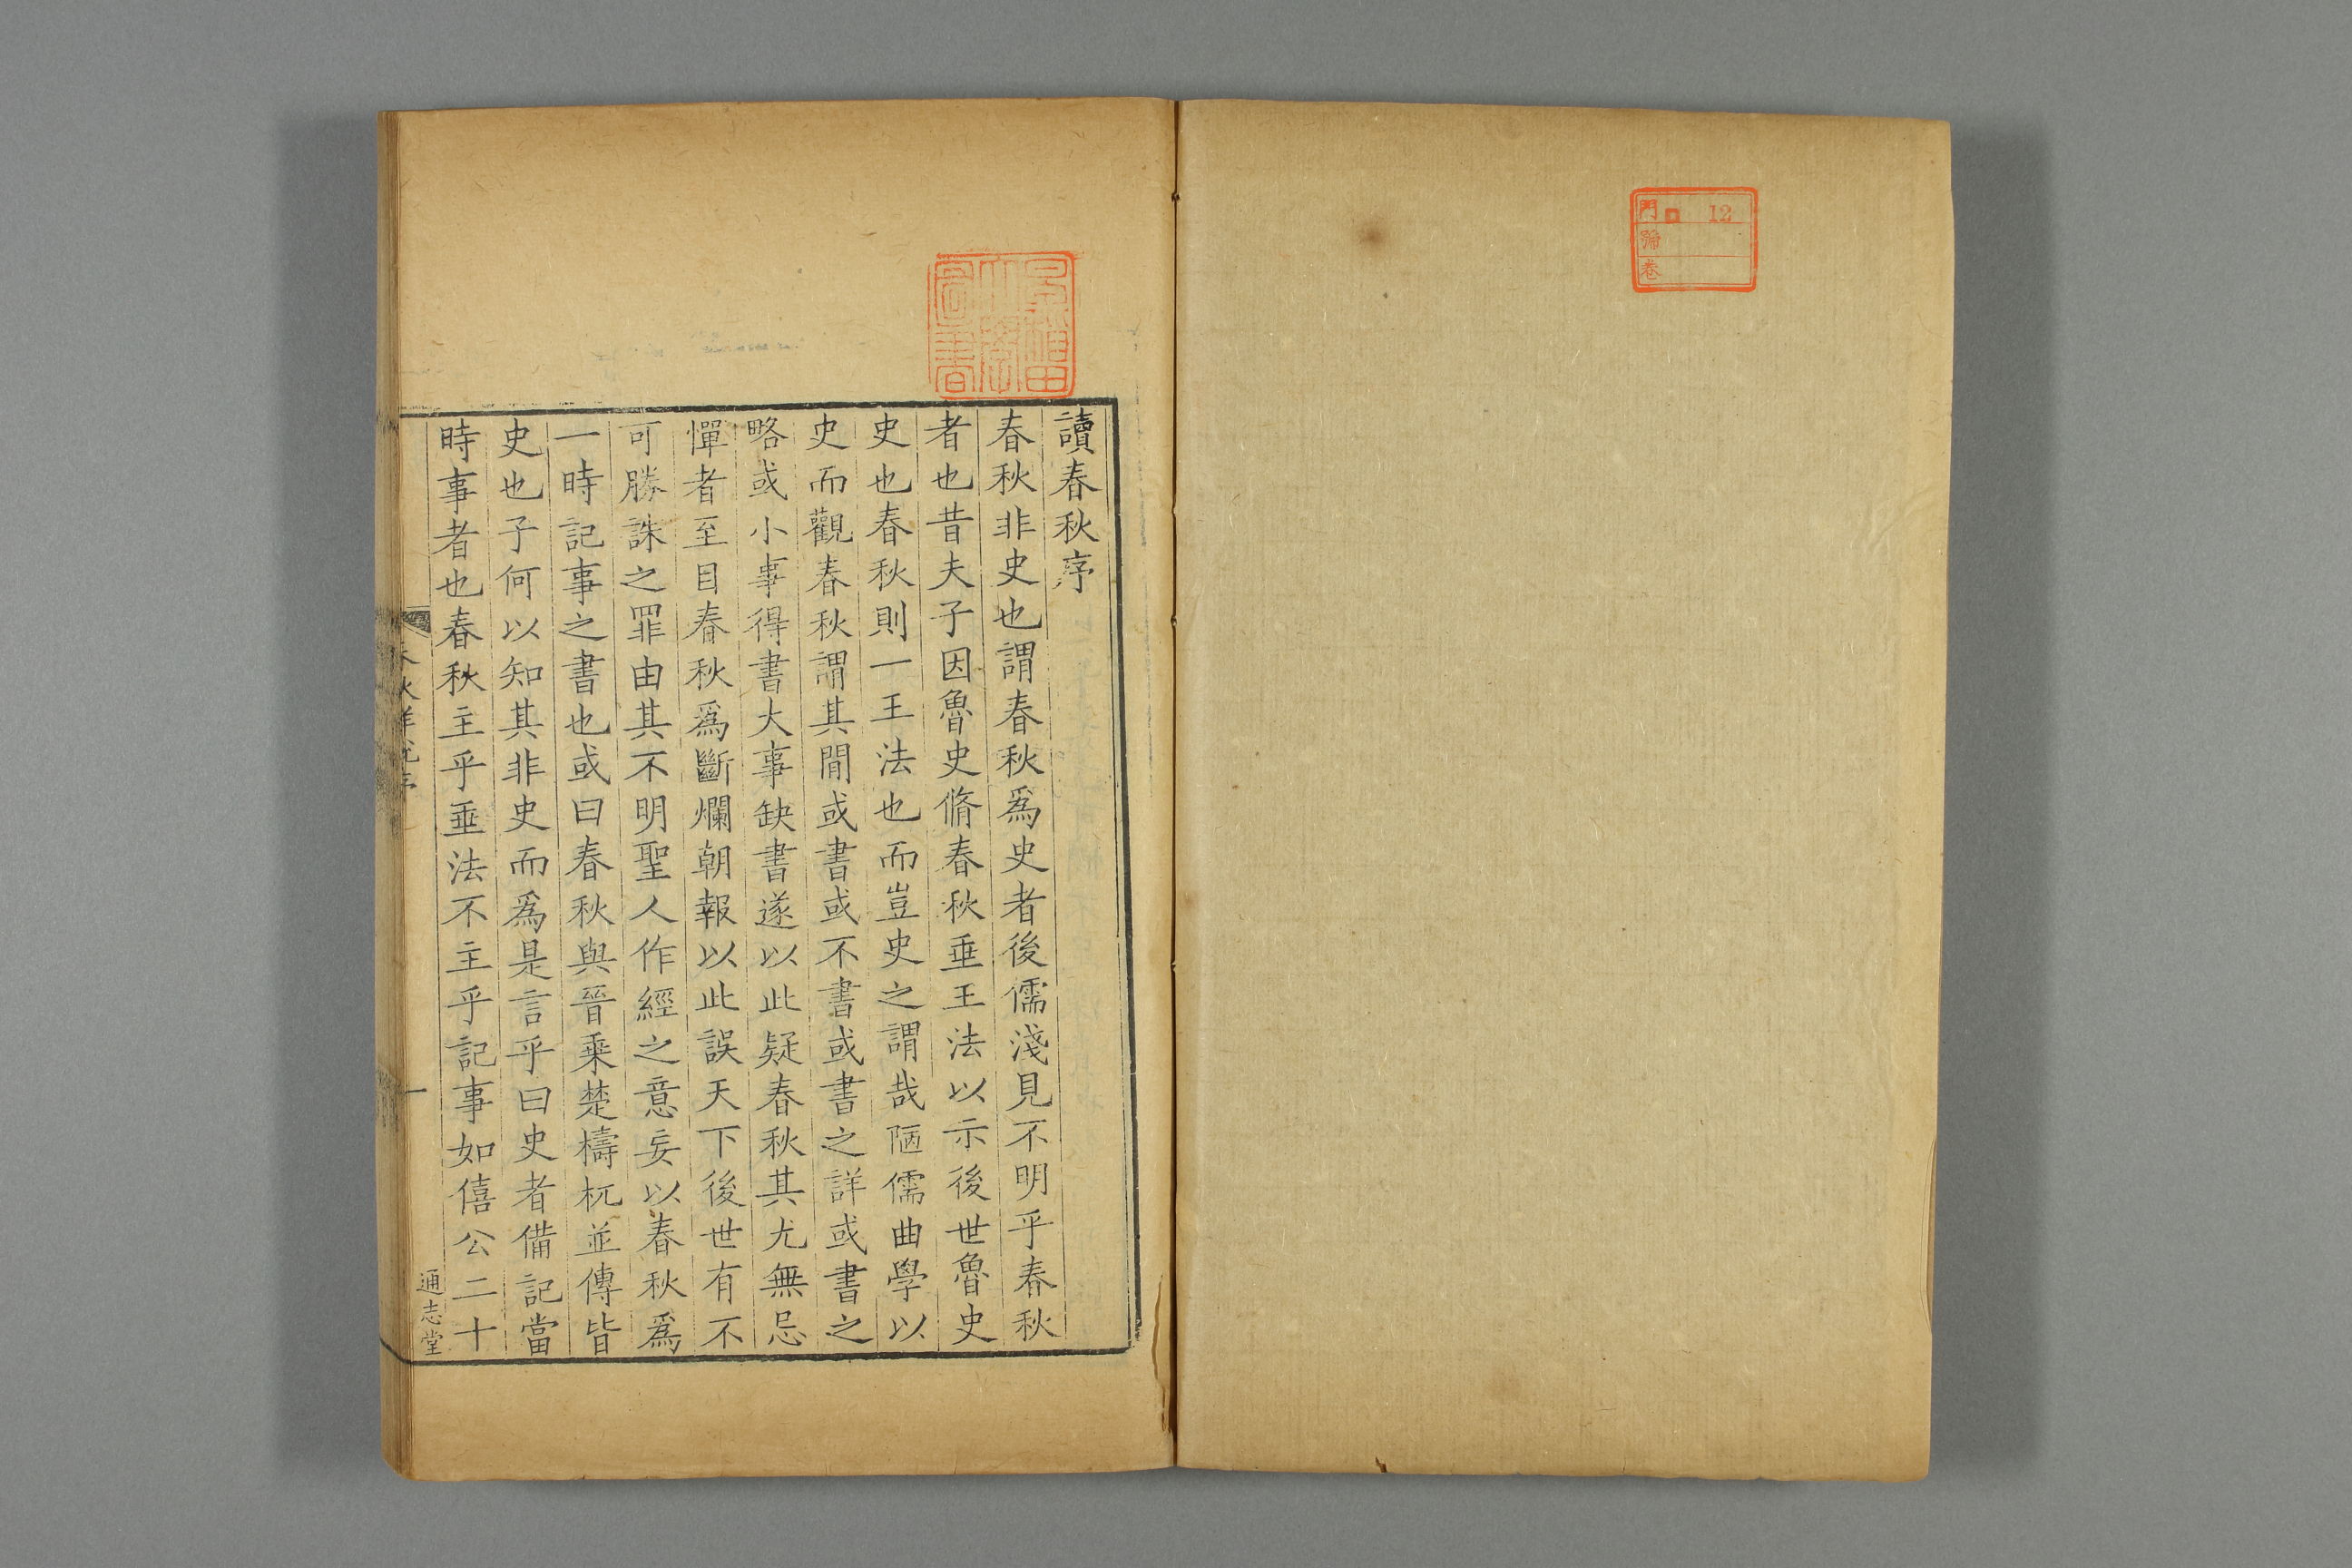 門 12
號
卷
讀春秋序
春秋非史也謂春秋爲史者後儒淺見不明乎春秋
者也昔夫子因魯史脩春秋垂王法以示後世魯史
史也春秋則一王法也而豈史之謂哉陋儒曲學以
史而觀春秋謂其間或書或不書或書之詳或書之
略或小事得書大事缺書遂以此疑春秋其尤無忌
憚者至目春秋爲斷爛朝報以此誤天下後世有不
可勝誅之罪由其不明聖人作經之意妄以春秋爲
一時記事之書也或曰春秋與晉乘楚檮杌並傳皆
史也子何以知其非史而爲是言乎曰史者備記當
時事者也春秋主乎垂法不主乎記事如僖公二十
春秋詳說序
一
通志堂